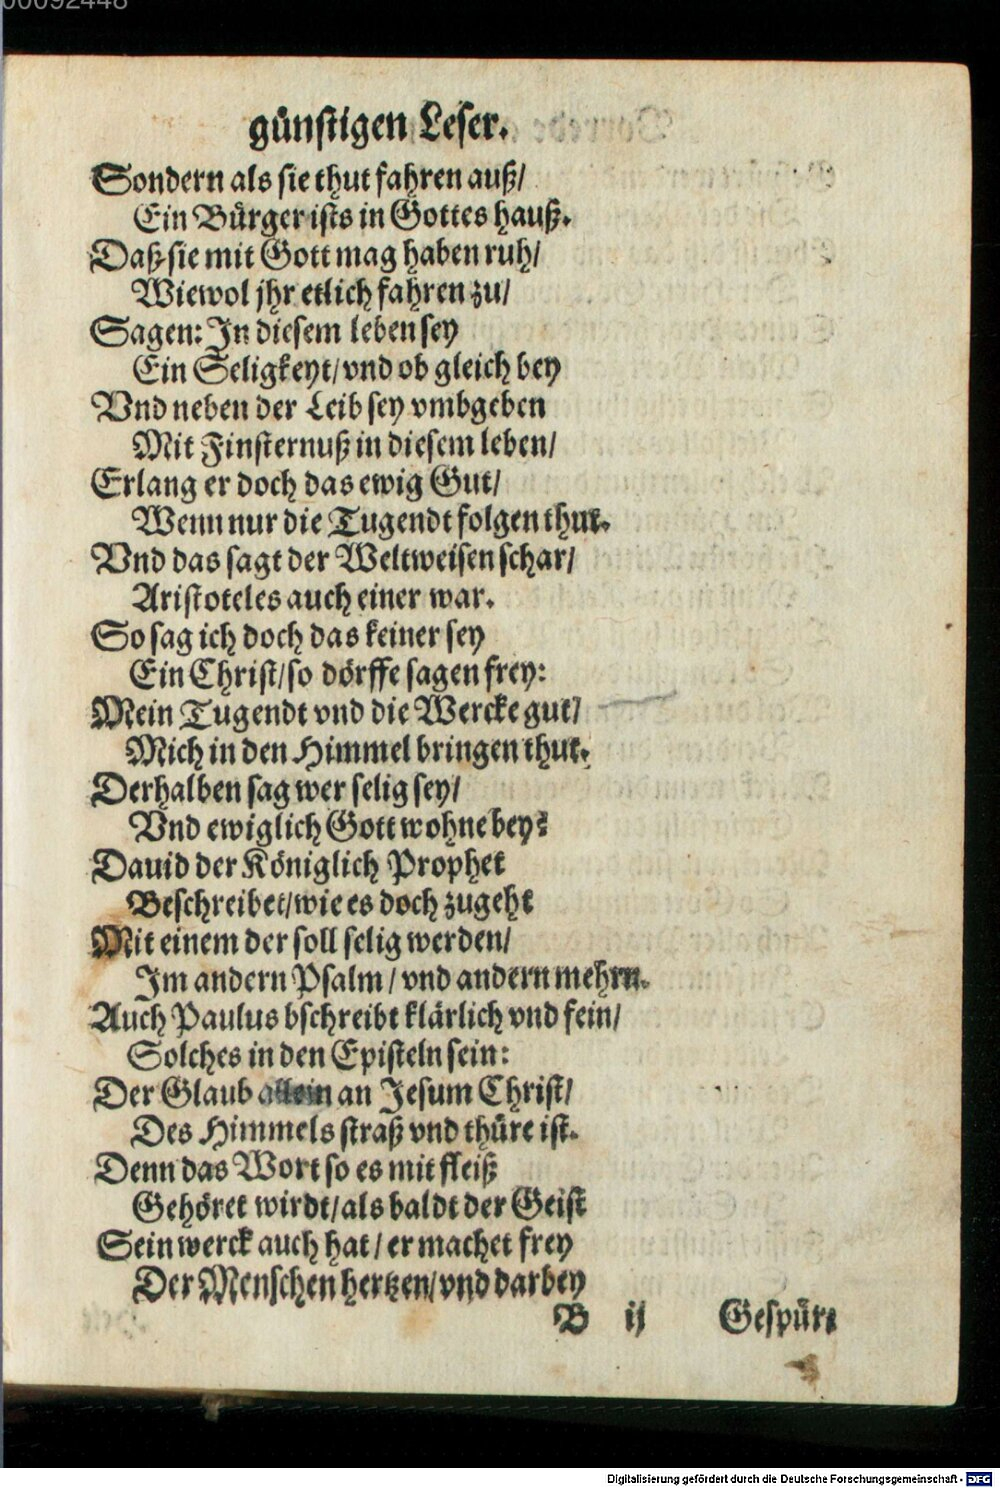 00092448
günstigen Leser.
Sondern als sie thut fahren auß/
Ein Bürger ists in Gottes hauß.
Daß sie mit Gott mag haben ruh/
Wiewol jhr etlich fahren zu/
Sagen: In diesem leben sey
Ein Seligkeyt/ vnd ob gleich bey
Vnd neben der Leib sey vmbgeben
Mit Finsternuß in diesem leben/
Erlang er doch das ewig Gut/
Wenn nur die Tugendt folgen thut.
Vnd das sagt der Weltweisen schar/
Aristoteles auch einer war.
So sag ich doch das keiner sey
Ein Christ/ so dörffe sagen frey:
Mein Tugendt vnd die Wercke gut/
Mich in den Himmel bringen thut.
Derhalben sag wer selig sey/
Vnd ewiglich Gott wohne bey?
Dauid der Königlich Prophet
Beschreibet/ wie es doch zugeht
Mit einem der soll selig werden/
Im andern Psalm/ vnd andern mehrn.
Auch Paulus bschreibt klärlich vnd fein/
Solches in den Episteln sein:
Der Glaub allein an Jesum Christ/
Des Himmels straß vnd thüre ist.
Denn das Wort so es mit fleiß
Gehöret wirdt/ als baldt der Geist
Sein werck auch hat/ er machet frey
Der Menschen hertzen/ vnd darbey
B ij Gespürt
Digitalisierung gefördert durch die Deutsche Forschungsgemeinschaft - DFG